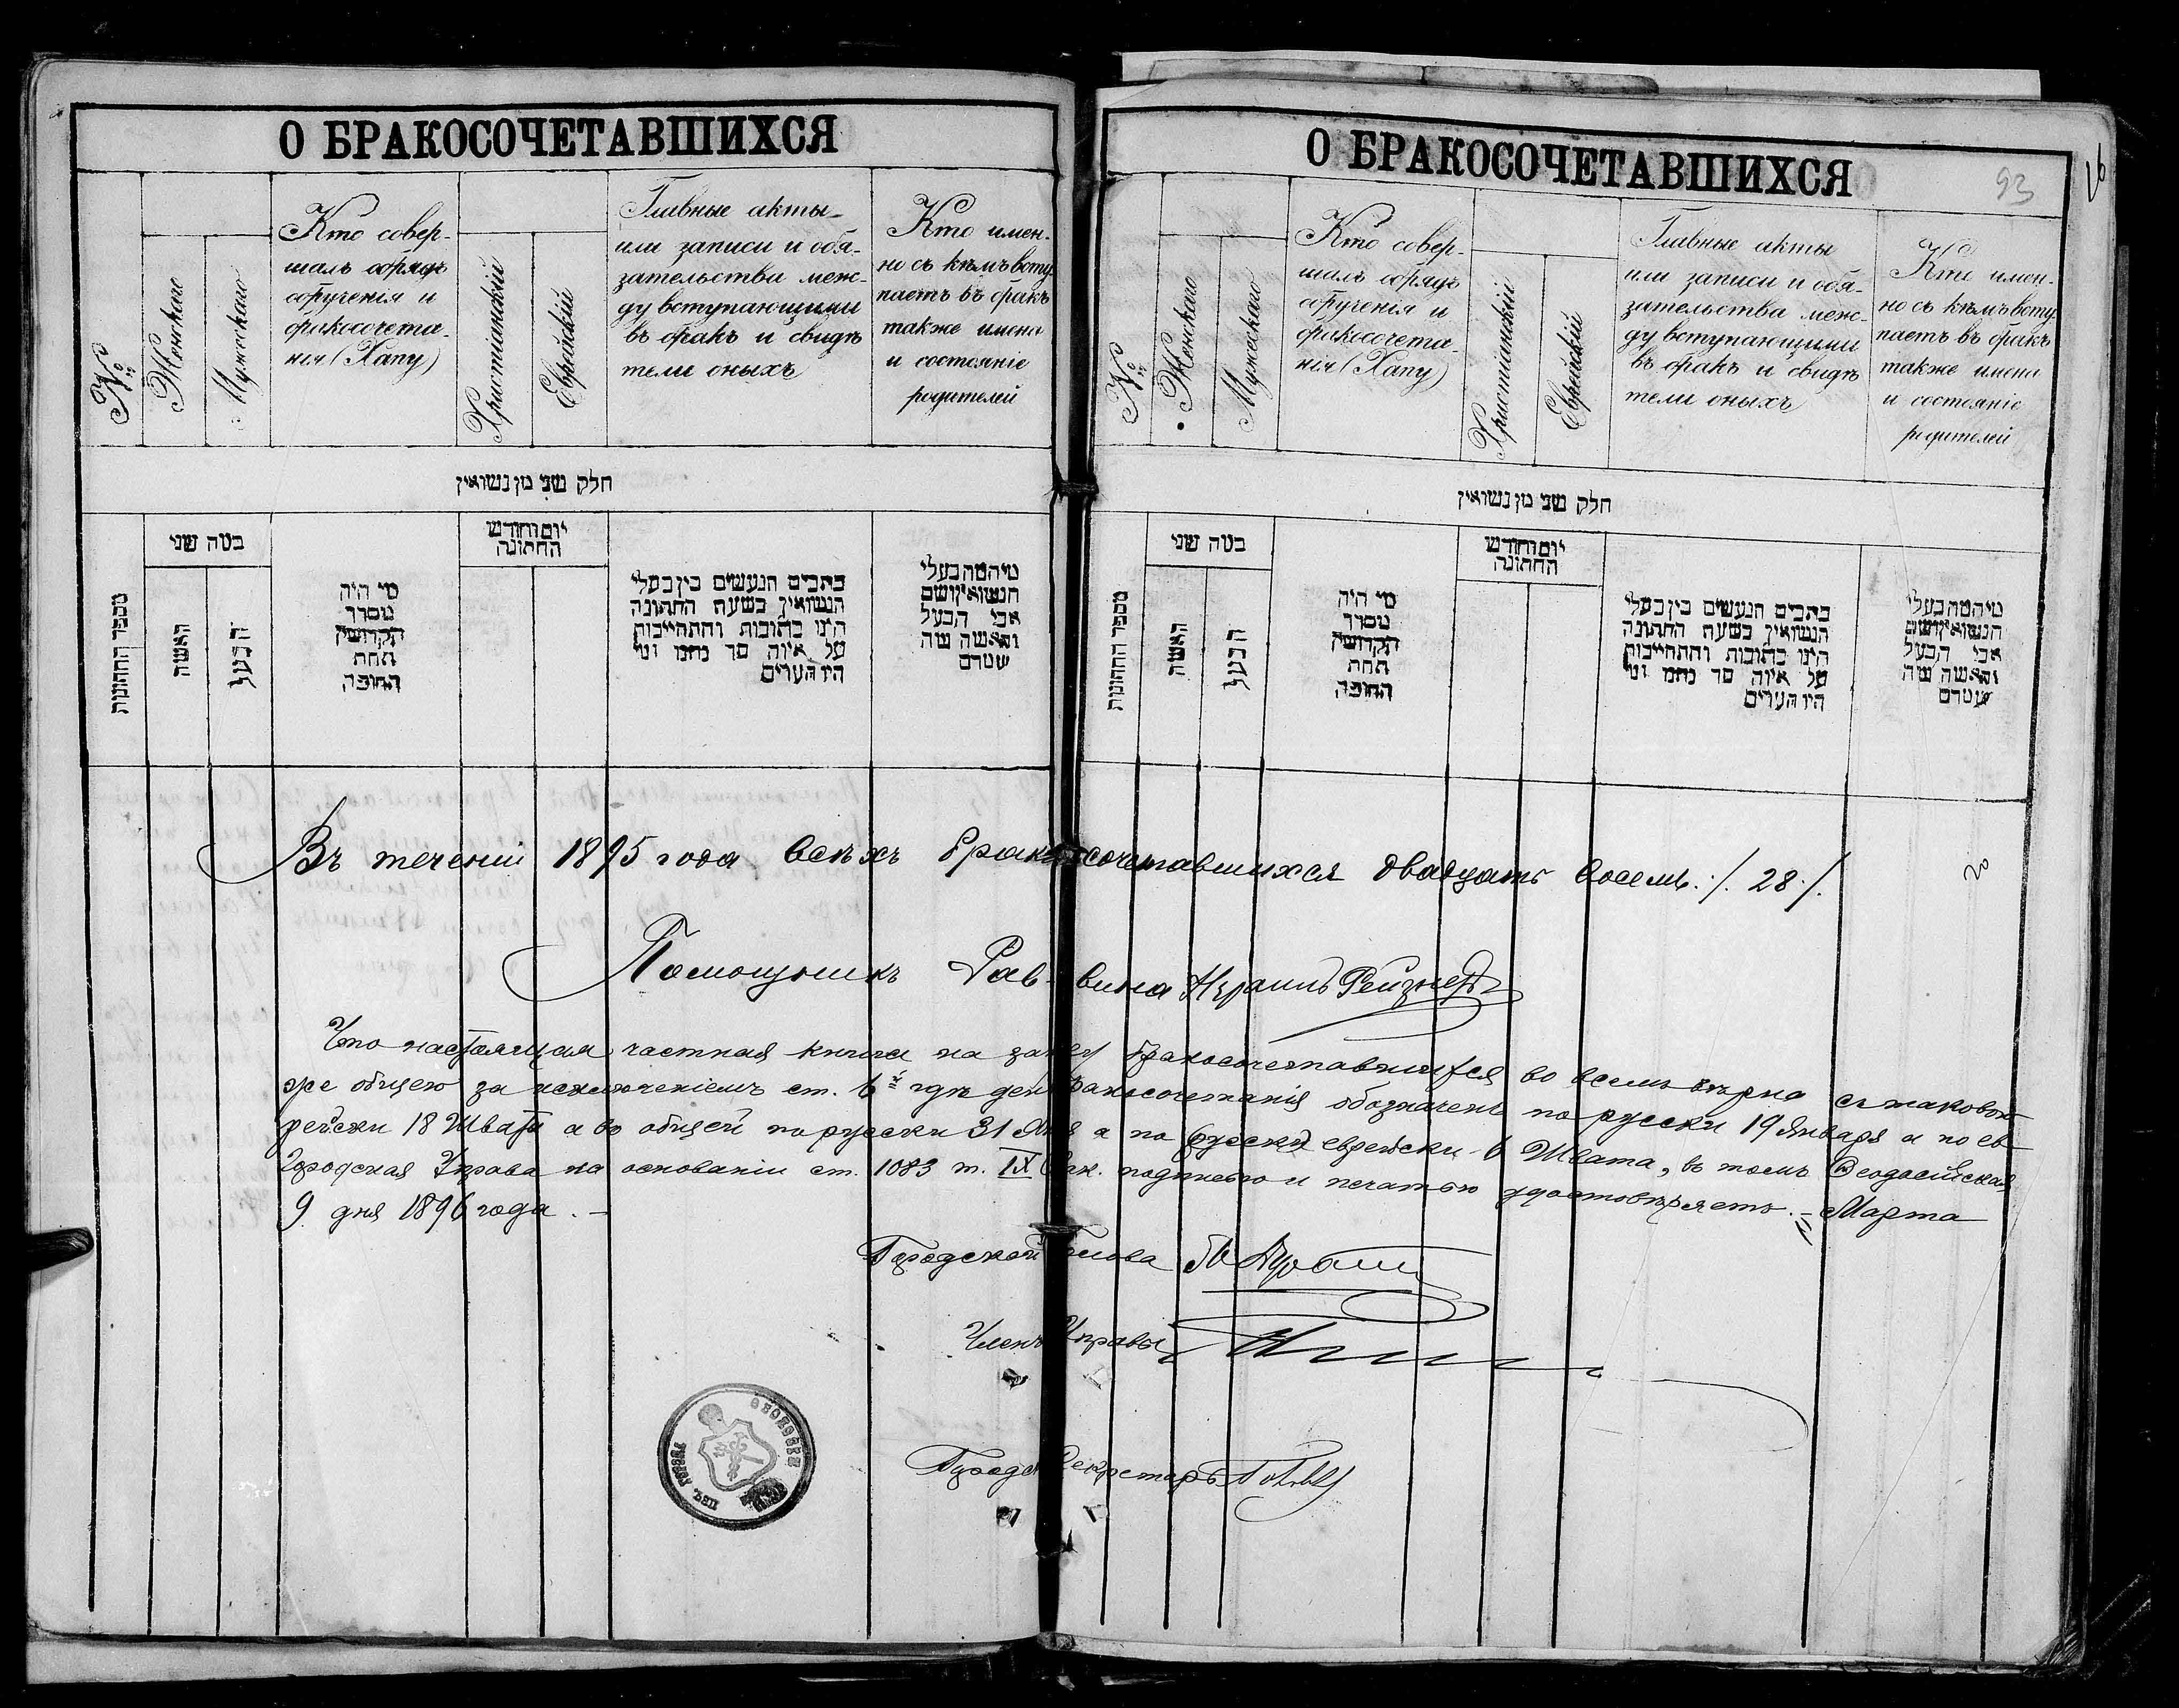 О БРАКОСОЧЕТАВШИХСЯ
№
Женскаго
Мужскаго
Кто совер-
шалъ обрядъ
обрученія и
бракосочета-
нія (Хапу)
Христіанскій
Еврейскій
Главные акты
или записи и обя-
зательства меж-
ду вступающими
въ бракъ и свидѣ
тели оныхъ
Кто имен-
но съ кѣмъ всту
паетъ въ бракъ
также имена
и состояніе
родителей
חלק שני מן נשואין
מספר החתונות
במה שני
האשה
הבעל
מי היה
מסדר
הקדושין
תחת
החופה
יום וחודש
החתונה
כתבים הנעשים בין בעלי
הנשואין בשעת החתונה
היינו כתובות והתחייבות
על איזה סך נתנו ומי
היו העדים
מי המה בעלי
הנשואין ושם
אבי הבעל
והאשה
О БРАКОСОЧЕТАВШИХСЯ
93
№
Женскаго
Мужскаго
Кто совер-
шалъ обрядъ
обрученія и
бракосочета-
нія (Хапу)
Христіанскій
Еврейскій
Главные акты
или записи и обя-
зательства меж-
ду вступающими
въ бракъ и свидѣ
тели оныхъ
Кто имен-
но съ кѣмъ всту
паетъ въ бракъ
также имена
и состояніе
родителей
חלק שני מן נשואין
מספר החתונות
במה שני
האשה
הבעל
מי היה
מסדר
הקדושין
תחת
החופה
יום וחודש
החתונה
כתבים הנעשים בין בעלי
הנשואין בשעת החתונה
היינו כתובות והתחייבות
על איזה סך נתנו ומי
היו העדים
מי המה בעלי
הנשואין ושם
אבי הבעל
והאשה
Въ теченіи 1895 года всѣхъ бракосочетавшихся двадцать восемь ./. 28 ./.
Помощникъ Раввина Израиль Рейзнеръ
Что настоящая частная книга на запись бракосочетавшихся во всемъ вѣрна съ таковой
же общею за исключеніемъ ст. 6й гдѣ день бракосочетанія обозначенъ по русски 19 Января а по ев
рейски 18 Швата а въ общей по русски 31 Янв а по русски еврейски 6 Швата, въ томъ Ѳеодосійская
Городская Управа на основаніи ст. 1083 т. IX Зак. подписью и печатью удостовѣряетъ. - Марта
9 дня 1896 года. -
Городской Голова
Членъ Управы
Городск Секретарь